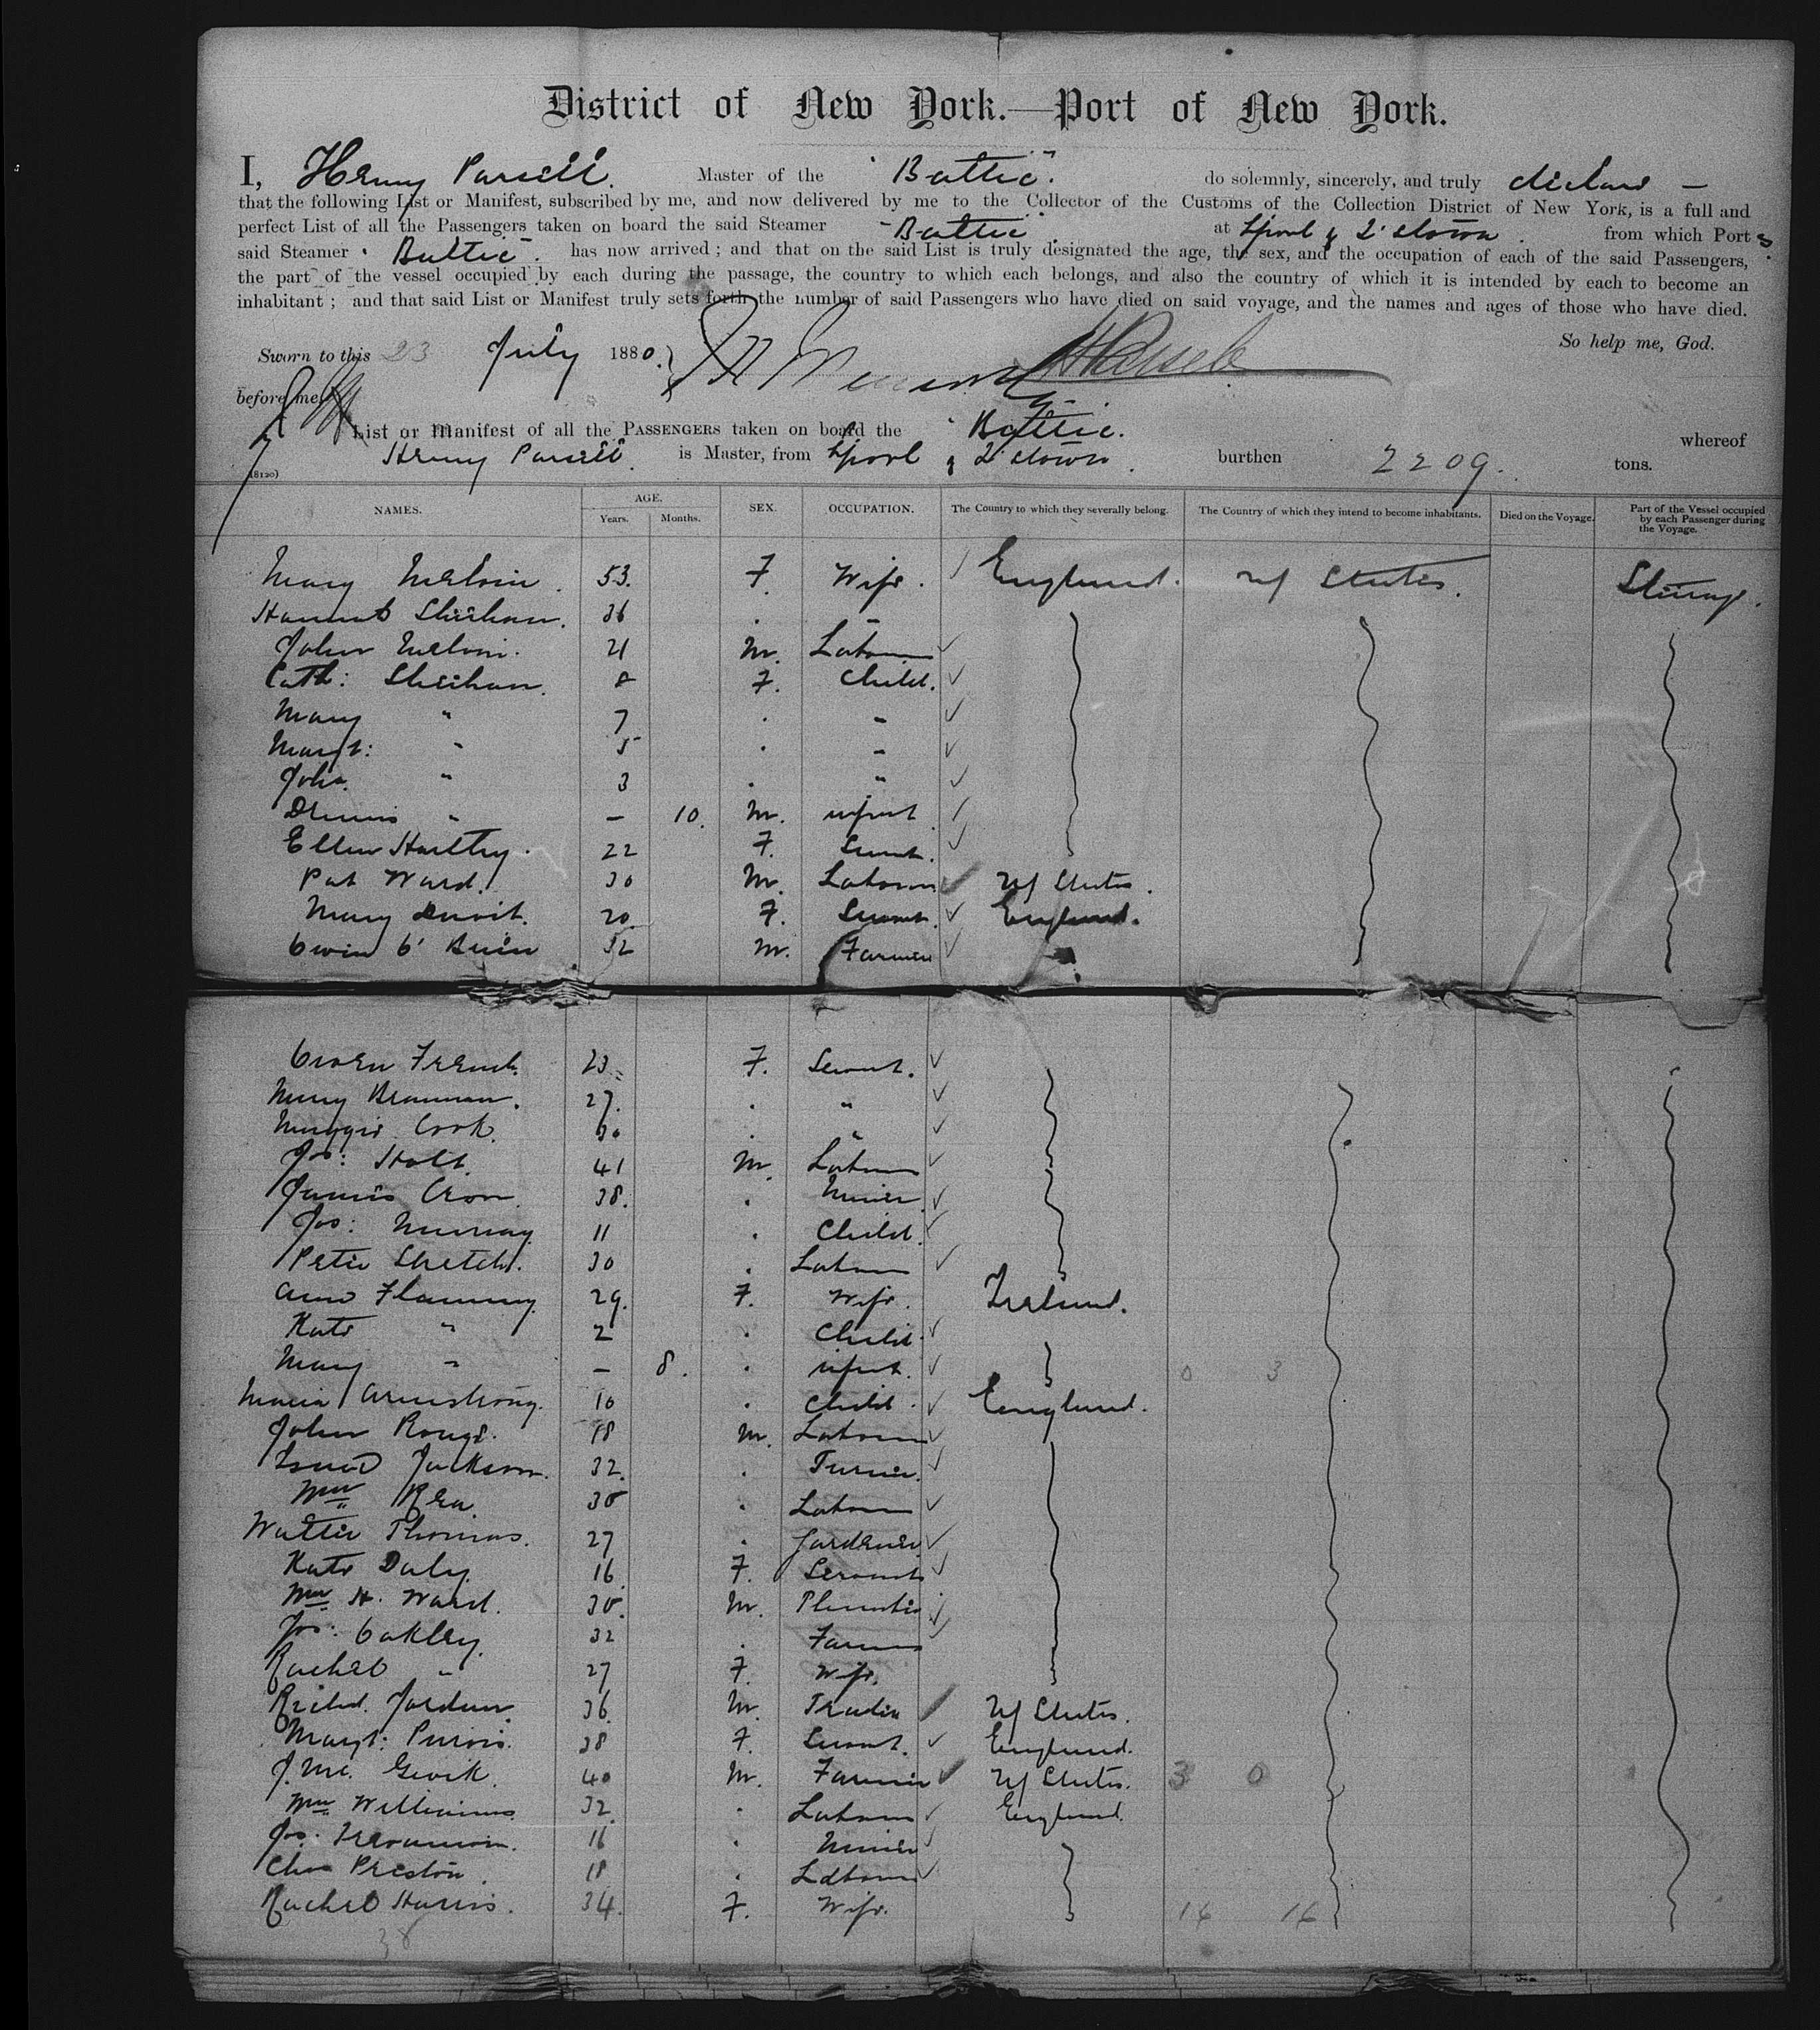 District of New York.—Port of New York.
I, Henry Parsell. Master of the "Baltic". do solemnly, sincerely, and truly declare —
that the following List or Manifest, subscribed by me, and now delivered by me to the Collector of the Customs of the Collection District of New York, is a full and
perfect List of all the Passengers taken on board the said Steamer "Baltic". at Lpool & Q'stown. from which Port s
said Steamer "Baltic". has now arrived ; and that on the said List is truly designated the age, the sex, and the occupation of each of the said Passengers,
the part of the vessel occupied by each during the passage, the country to which each belongs, and also the country of which it is intended by each to become an
inhabitant ; and that said List or Manifest truly sets forth the number of said Passengers who have died on said voyage, and the names and ages of those who have died.
So help me, God.
Sworn to this 23 July 1880.
before me
List or Manifest of all the PASSENGERS taken on board the "Baltic. whereof
Henry Parsell. is Master, from Lpool & Q'stown. burthen 2209. tons.
(8120)
NAMES. AGE. Years. Months. SEX. OCCUPATION. The Country to which they severally belong. The Country of which they intend to become inhabitants. Died on the Voyage. Part of the Vessel occupied by each Passenger during the Voyage.
Mary Melvin. 53. F. Wife. England. U/ States. Steerage.
Hannah Sheehan. 36 . "
John Melvin. 21 M. Labourer
Cath: Sheehan. 8 F. Child.
Mary " 7 . "
Margt: " 5 . "
John. " 3 . "
Dennis " — 10. M. infant
Ellen Hartley. 22 F. Servt.
Pat Ward. 30 M. Labourer U/ States.
Mary 20 F. Servant. England.
Owen O'Brien 52 M. Farmer "
Owen French. 23 F. Servant.
Mary Brannan. 27. . "
Maggie Cook. 30 . "
Jos: Holt. 41 M Labourer
James Cron. 38. . Miner
Jos: Murray 11 . Child.
Peter Stretch. 30 . Labourer
Ann Flanning 29. F. Wife. Ireland.
Kate " 2 . Child
Mary " — 8. . infant. 0 3
Maria Armstrong. 10 . Child. England.
John Rouge. 18 M. Labourer
Isaac Jackson. 32. . Turner.
Wm Rea 35 . Labourer
Walter Thomas. 27 . Gardener
Kate Daly 16 F. Servant
Wm H. Ward. 35. M. Plumber
Jos: Oakley. 32 . Farmer
Rachel " 27 F. Wife.
Richd. Jordan 36 M. Trader U/ States.
Margt: Purvis. 38 F. Servant. England.
J. Mc. Gevik. 40 M. Farmer U/ States. 3 0
Wm Williams 32. . Labourer England.
Jos. 16 . Miner
Chas Preston. 18 . Labourer
Rachel Harris. 34. F. Wife. 14 16
38